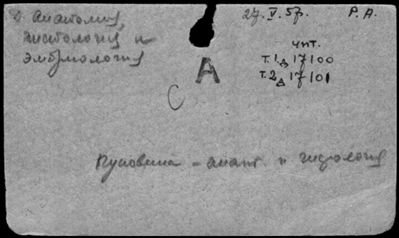 д. Анатомия,
гистология и
эмбриология
27.V.57. Р.А.
чит.
т.1д 17100
т.2д 17101
А
С
Пуповина – анат и гистология